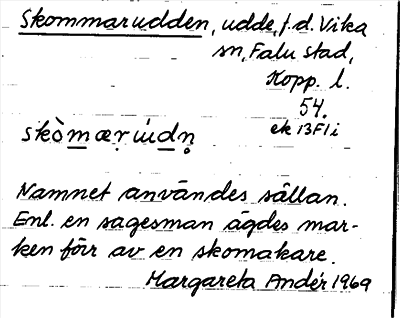 Skommarudden, udde, f.d. Vika
sn, Falu stad,
Kopp. l.
54.
ek 13F1i
skòmæṛúdṇ
Namnet användes sällan.
Enl. en sagesman ägdes mar-
ken förr av en skomakare.
Margareta Andér 1969